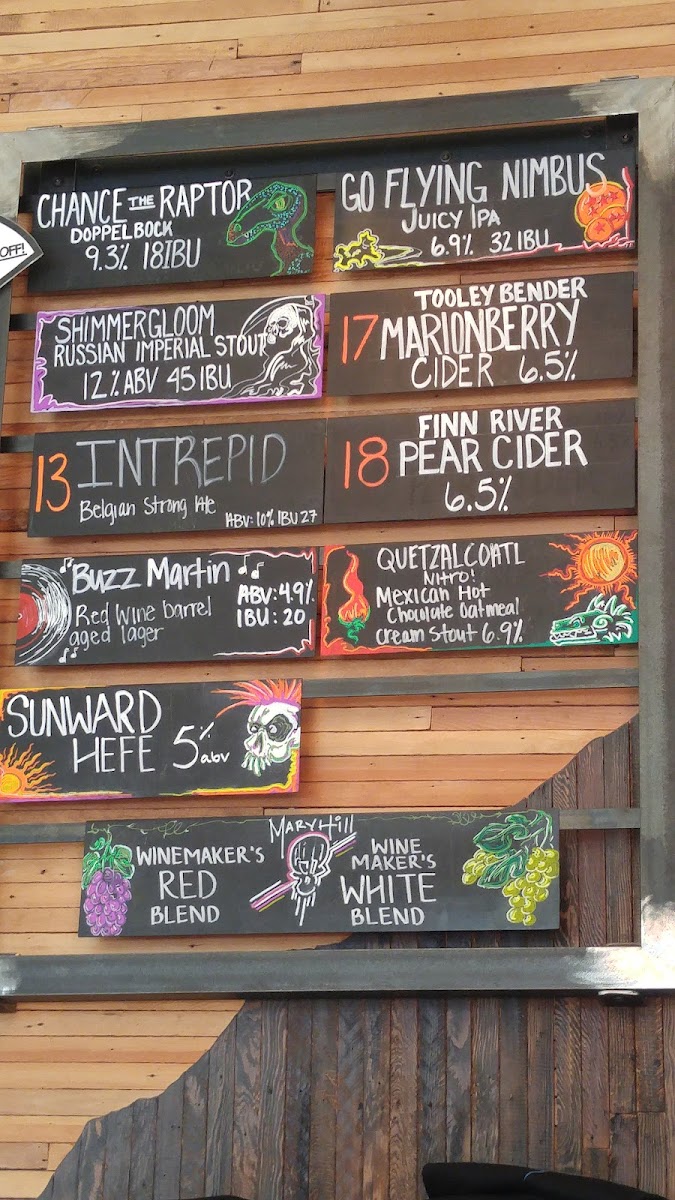 OFF!
CHANCE THE RAPTOR
DOPPELBOCK
9.3% 18IBU
GO FLYING NIMBUS
JUICY IPA
6.9% 32 IBU
SHIMMERGLOOM
RUSSIAN IMPERIAL STOUT
12.% ABV 45 IBU
TOOLEY BENDER
17 MARIONBERRY
CIDER 6.5%
13 INTREPID
Belgian Strong Ale
ABV: 10% IBU 27
FINN RIVER
18 PEAR CIDER
6.5%
Buzz Martin
Red Wine barrel
aged lager
ABV: 4.9%
IBU: 20
QUETZALCOATL
NITRO!
Mexican Hot
Chocolate Oatmeal
Cream Stout 6.9%
SUNWARD
HEFE 5% abv
MARYHILL
WINEMAKER'S
RED
BLEND
WINE
MAKER'S
WHITE
BLEND